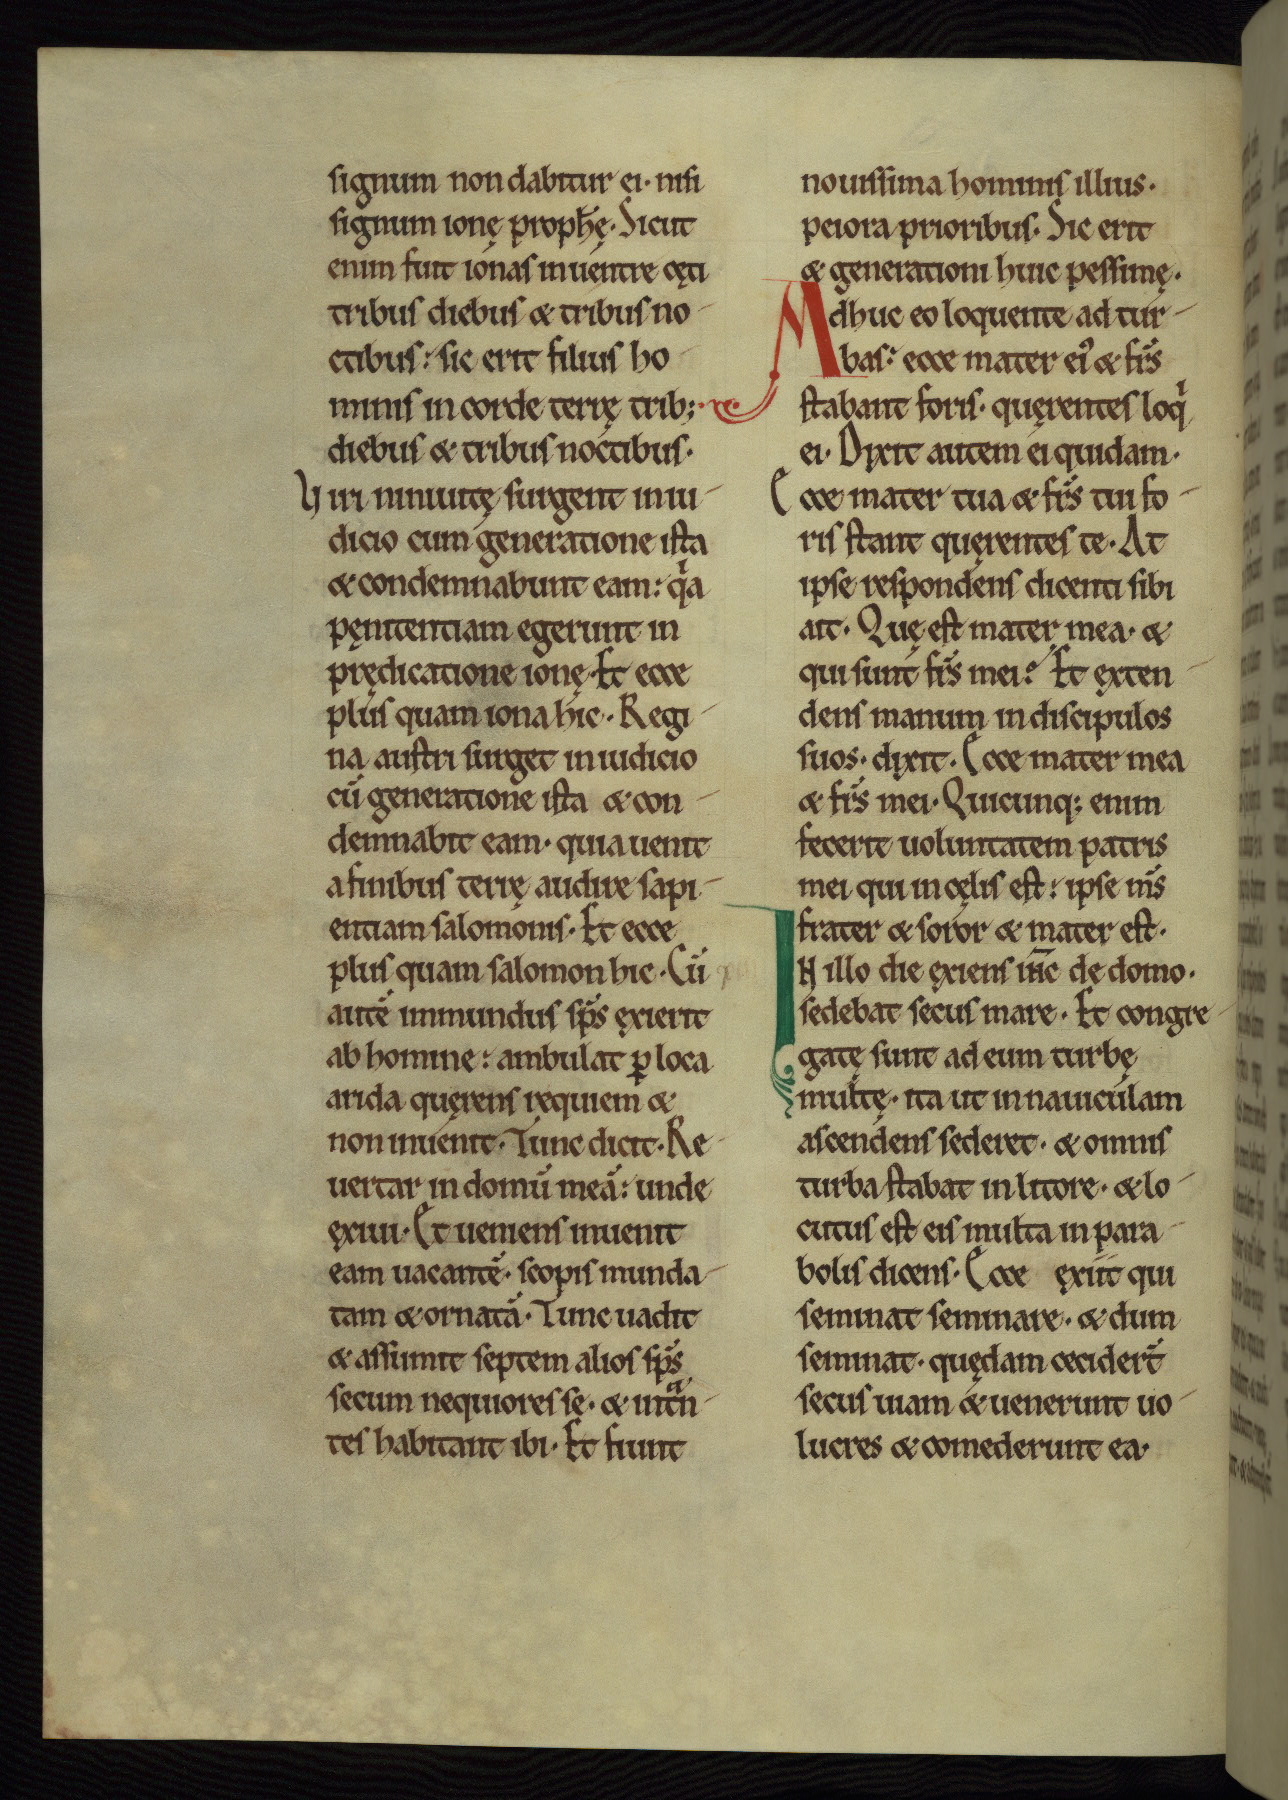 signum non dabitur ei· nisi
signum ionę proph̅ę· Sicut
enim fuit ionas in uentre cęti
tribus diebus & tribus no-
ctibus: sic erit filius ho-
minis in corde terrę trib;
diebus & tribus noctibus·
Uiri niniuitę surgent in iu-
dicio cum generatione ista
& condemnabunt eam: qia
pęnitentiam egerunt in
prędicatione ionę· Et ecce
plus quam iona hic· Regi-
na austri surget in iudicio
cū generatione ista & con-
demnabit eam· quia uenit
a finibus terrę audire sapi-
entiam salomonis· Et ecce
plus quam salomon hic· Cū
autē immundus sp̅s exierit
ab homine: ambulat ꝑ loca
arida quęrens requiem &
non inuenit· Tunc dicit· Re-
uertar in domū meā: unde
exiui· Et ueniens inuenit
eam uacantē· scopis munda-
tam & ornatā· Tunc uadit
& assumit septem alios sp̅s
secum nequiores se· & intªn-
tes habitant ibi· Et fiunt
nouissima hominis illius·
peiora prioribus· Sic erit
& generationi huic pessimę·
Adhuc eo loquente ad tur-
bas: ecce mater ei᾽ & fr̅s
stabant foris· quęrentes loqi
ei· Dixit autem ei quidam·
Ecce mater tua & fr̅s tui fo-
ris stant quęrentes te· At
ipse respondens dicenti sibi
ait· Quę est mater mea· &
qui sunt fr̅s mei? Et exten-
dens manum in discipulos
suos· dixit· Ecce mater mea
& fr̅s mei· Quicunq; enim
fecerit uoluntatem patris
mei qui in cęlis est: ipse m̅s
frater & soror & mater est·
IN illo die exiens ih̅c de domo·
sedebat secus mare· Et congre-
gatę sunt ad eum turbę
multę· ita ut in nauiculam
ascendens sederet· & omnis
turba stabat in litore· & lo-
cutus est eis multa in para-
bolis dicens· Ecce exiit qui
seminat seminare· & dum
seminat· quędam cecider̅t
secus uiam & uenerunt uo-
lucres & comederunt ea·